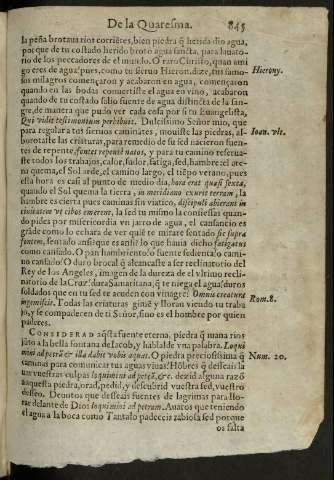 De la Quaresma. 845
la peña brotaua rios corriẽtes, bien piedra q̃ herida dio agua,
porque de tu costado herido broto agua sancta, para lauato-
rio de los peccadores de el mundo. O raro Christo, quan ami
go eres de agua! pues, como tu sieruo Hieron. dize, tus famo-
sos milagros començaron y acabaron en agua, començaron
quando en las bodas conuertiste el agua en vino, acabaron
quando de tu costado salio fuente de agua distincta de la san-
gre, de manera que pudo ver cada cosa por si tu Euangelista,
Qui vidit testimonium perhibuit. Dulcissimo Señor mio, que
para regalar a tus sieruos caminãtes, mouiste las piedras, al-
borotaste las criaturas, para remedio de su sed nacieron fuen-
tes de repente, fontes repentè natos, y para tu camino reserua-
ste todos los trabajos, calor, sudor, fatiga, sed, hambre: el ate-
na quema, el Sol arde, el camino largo, el tiẽpo verano, pues
esta hora es casi al punto de medio dia, hora erat quasi sexta,
quando el Sol quema la tierra, in meridiano exurit terram, la
hambre es cierta pues caminas sin viatico, discipuli abierant in
ciuitatem vt cibos emerent, la sed tu mismo la confiessas quan-
do pides por misericordia vn jarro de agua, el cansancio es
grãde como lo echara de ver quiẽ te mirare sentado sic supra
fontem, sentado ansi que es ansi? lo que hauia dicho fatigatus
como cansado. O pan hambriento! fuente sedienta! o cami-
no cansado! O duro brocal q̃ alcançaste a ser reclinatorio del
Rey de los Angeles, imagen de la dureza de el vltimo recli-
natorio de la Cruz! dura Samaritana, q̃ te niega el agua! duros
soldados que en tu sed te acuden con vinagre! Omnis creatura
ingemiscit. Todas las criaturas gimẽ y lloran viendo tu traba
jo, y se compadecen de ti Señor, sino es el hombre por quien
padeces.
CONSIDERAD aq̃sta fuente eterna, piedra q̃ mana rios
jũto a la bella fontana de Iacob, y hablalde vna palabra. Loqui
mini ad petrã & illa dabit vobis aquas. O piedra preciosissima q̃
caminas para comunicar tus aguas viuas! Hõbres q̃ desseais la
uar vuestras culpas loquimini ad petrã, &c. dezid alguna razõ
a aquesta piedra, orad, pedid, y descubrid vuestra sed, vuestro
desseo. Deuotos que desseais fuentes de lagrimas para llo-
rar delante de Dios loquimini ad petram. Auaros que teniendo
el agua a la boca como Tantalo padeceis rabiosa sed porque
os falta
Hierony.
Ioan. vlt.
Rom. 8.
Num. 20.